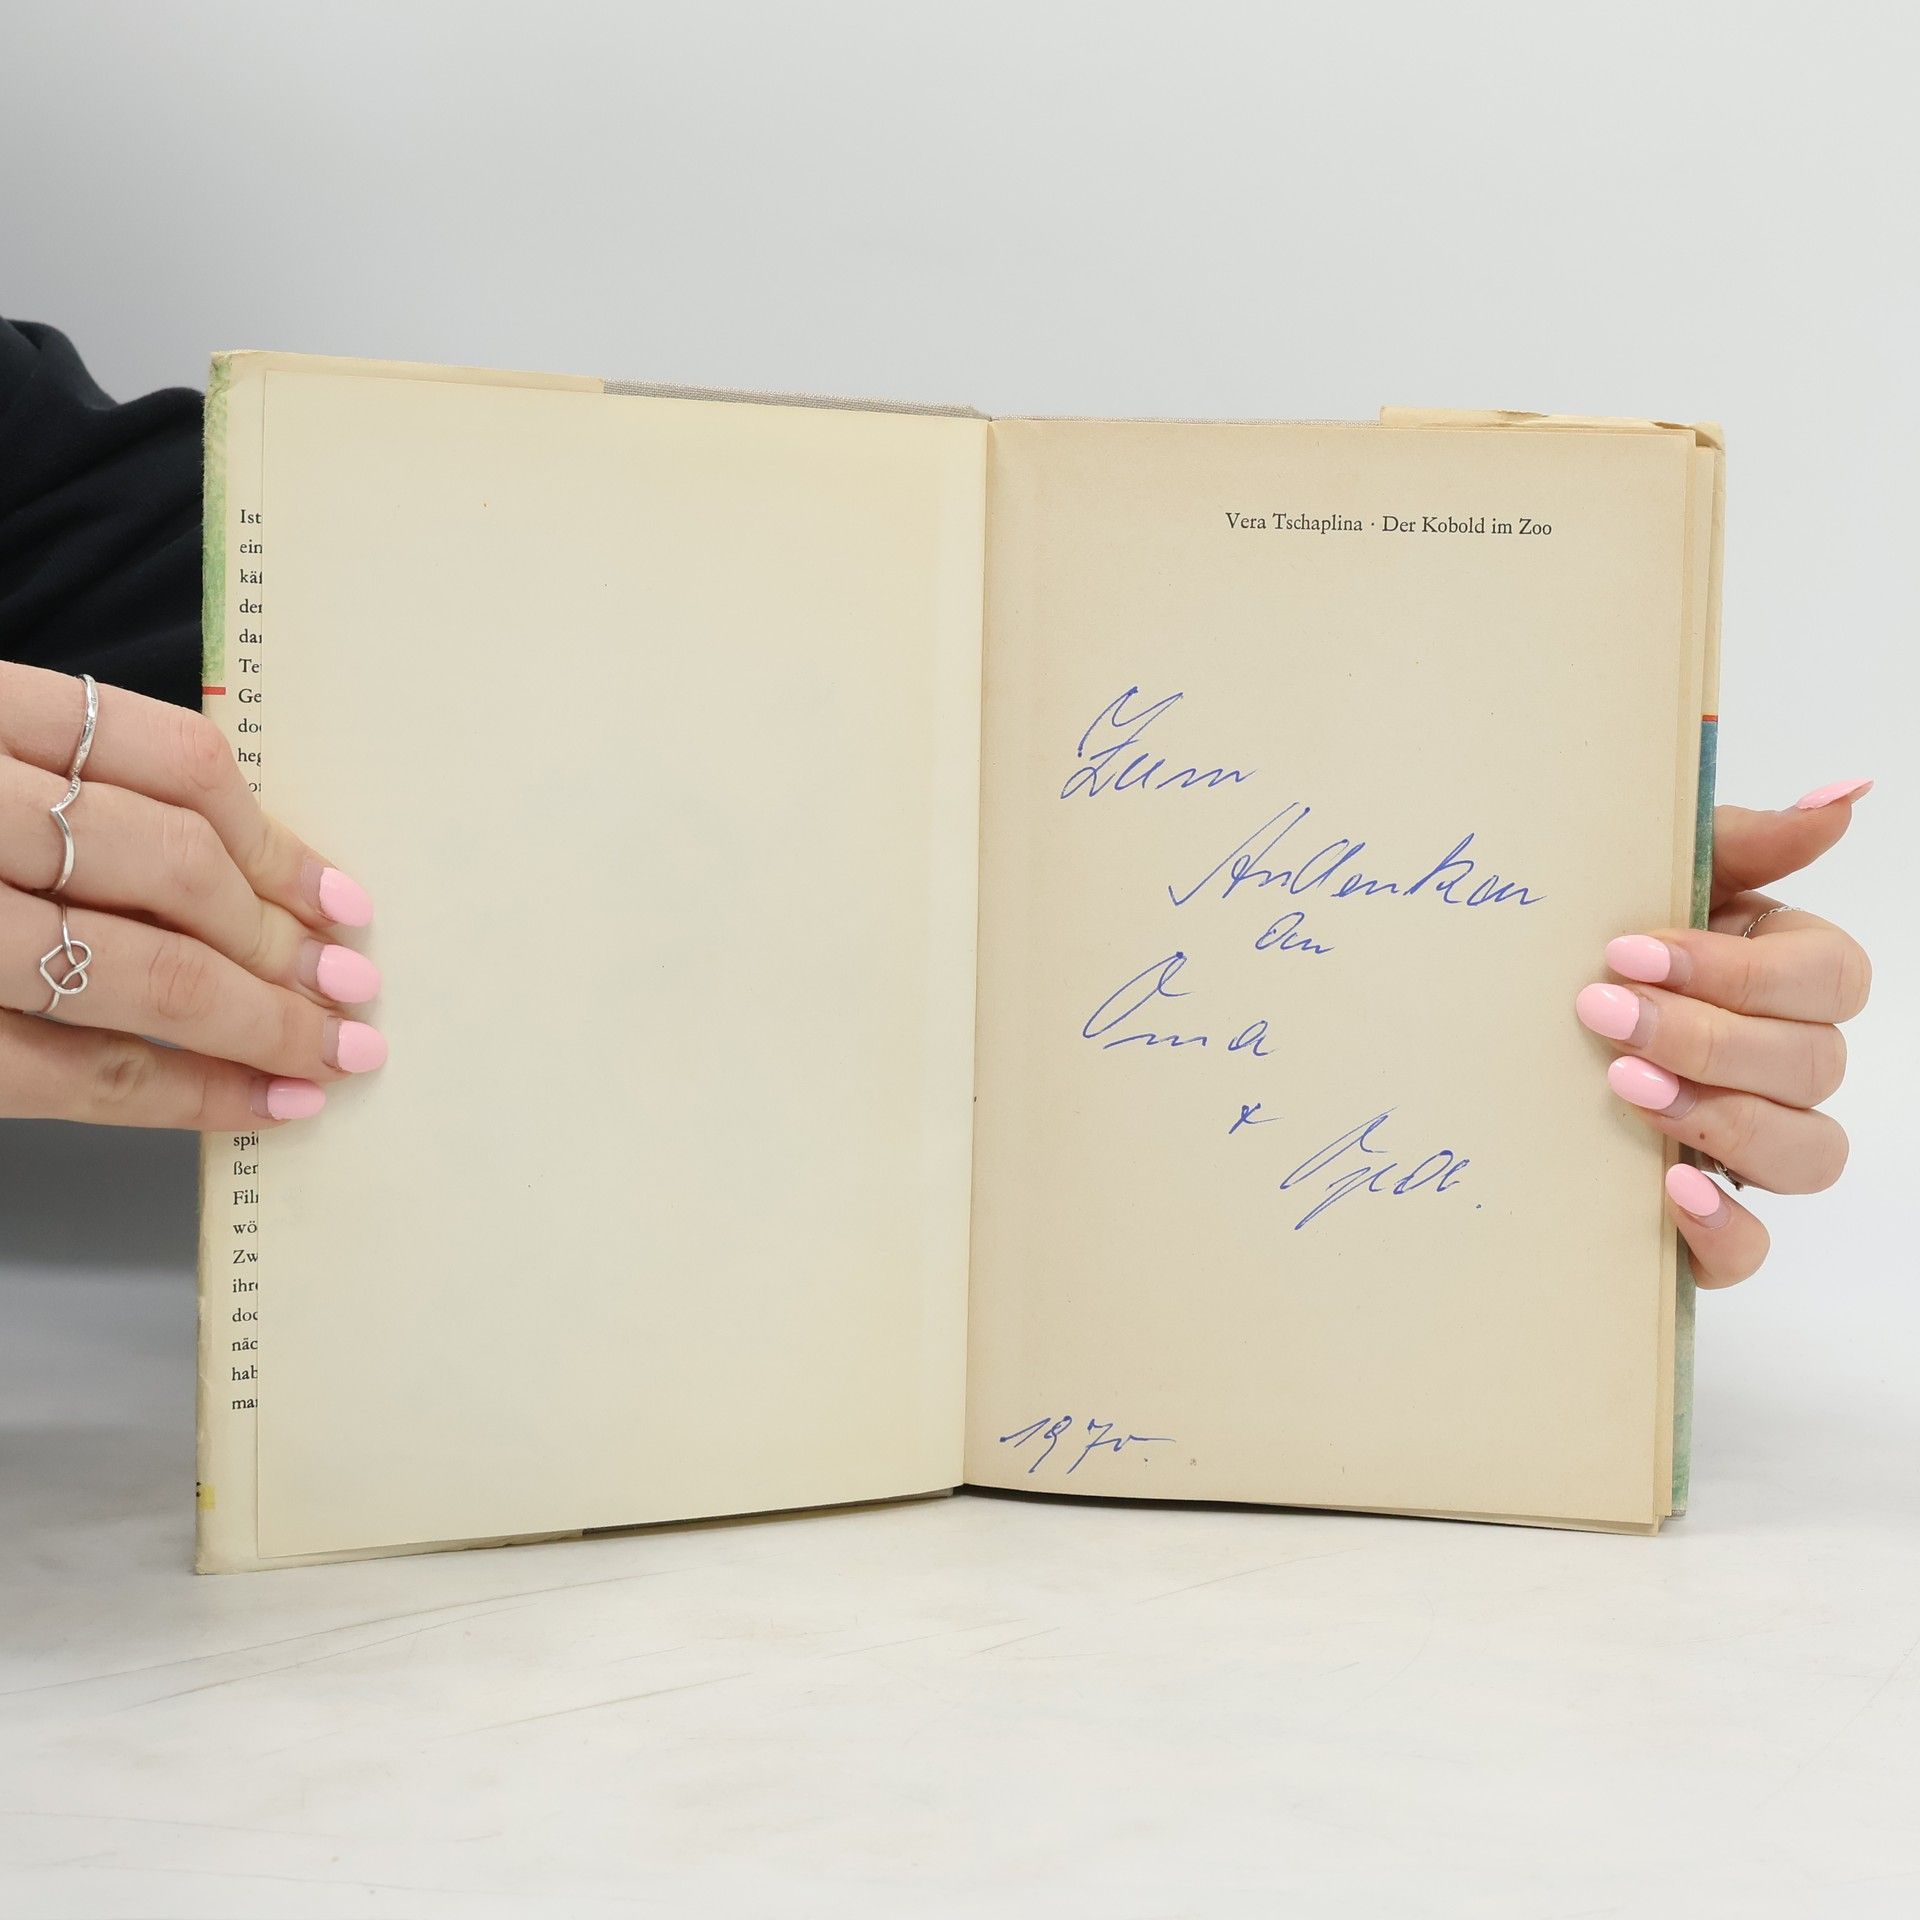 Ist
ein
käf
der
dar
Te
Ge
doc
heg
spi
ßer
Fil
wö
Zw
ihre
doc
näc
hab
mar
Vera Tschaplina · Der Kobold im Zoo
Zum
Andenken
an
Oma
+ Opa.
1970.